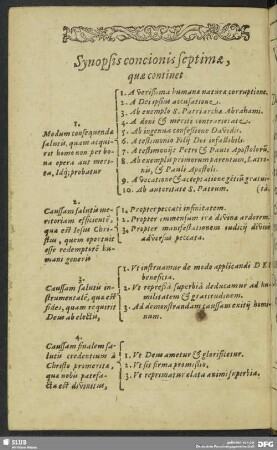 Synopsis concionis septimæ,
quæ continet
1.
Modum consequendæ
salutis, quam acqui-
rit homo non per bo-
na opera aut meri-
ta, Idq; probatur
1. A verissima humanæ naturæ corruptione.
2. A Dei ipsius accusatione.
3. Ab exemplo S. Patriarchæ Abrahami.
4. A doni & meriti contrarietate.
5. Ab ingenua confessione Davidis.
6. A testimonio Filij Dei infallibili.
7. A testimonijs Petri & Pauli Apostolorũ.
8. Ab exemplis primorum parentum, Latro-
nis, & Pauli Apostoli.
9. A vocatione & acceptatione gentis gratui-
10. Ab autoritate S. Patrum. (ta.
2.
Caussam salutis me-
ritoriam efficientẽ,
qua est Jesus Chri-
stus, quem oportuit
esse redemptorẽ hu-
mani generis
1. Propter peccati infinitatem.
2. Propter immensum iræ divinæ ardorem.
3. Propter manifestationem judicij divini
adversus peccata.
3.
Caussam salutis in-
strumentalẽ, quæ est
fides, quam requirit
Deus ab electis,
1. Vt instruamur de modo applicandi DEI
beneficia.
2. Vt repressa superbia deducamur ad hu-
militatem & gratitudinem.
3. Ad demonstrandam caussam exitij homi-
num.
4.
Caussam finalem sa-
lutis credentium à
Christo promerita,
quæ nobis patefa-
cta est divinitus,
1. Vt Deus ametur & glorificetur.
2. Vt sit firma promissio.
3. Vt reprimatur elata animi superbia.
SLUB
Wir führen Wissen.
DFG